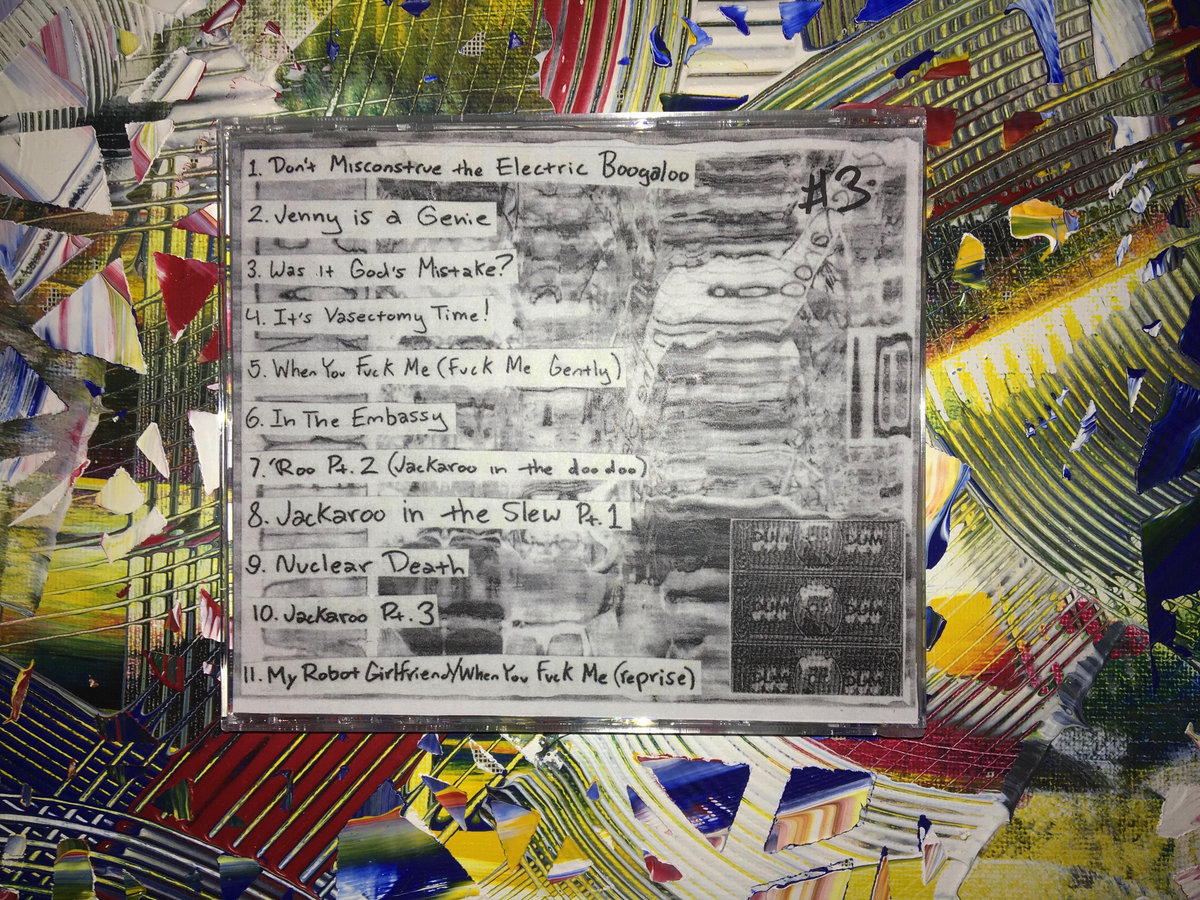 1. Don't Misconstrue the Electric Boogaloo
#3
2. Jenny is a Genie
3. Was it God's Mistake?
4. It's Vasectomy Time!
5. When You Fuck Me (Fuck Me Gently)
6. In The Embassy
7. 'Roo Pt. 2 (Jackaroo in the doodoo)
8. Jackaroo in the Slew Pt. 1
9. Nuclear Death
10. Jackaroo Pt. 3
11. My Robot Girlfriend/When You Fuck Me (reprise)
DUM DUM
DUM DUM
DUM DUM